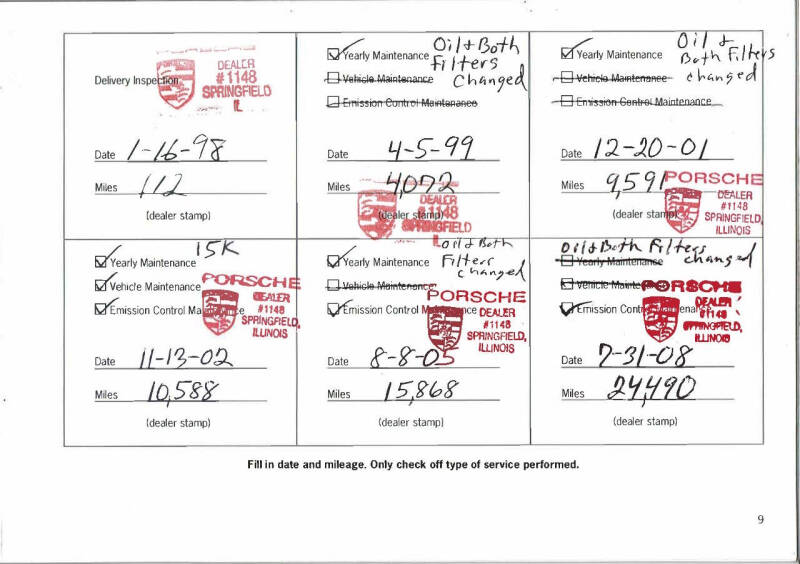 Delivery Inspection
DEALER
#1148
SPRINGFIELD
IL
Date 1-16-98
Miles 112
(dealer stamp)
Yearly Maintenance Oil & Both
Filters
Changed
Vehicle Maintenance
Emission Control Maintenance
Date 4-5-99
Miles 4,072
(dealer stamp)
DEALER
#1148
SPRINGFIELD
IL
Yearly Maintenance Oil &
Both Filters
changed
Vehicle Maintenance
Emission Control Maintenance
Date 12-20-01
Miles 9,591
(dealer stamp)
PORSCHE
DEALER
#1148
SPRINGFIELD,
ILLINOIS
15K
Yearly Maintenance
Vehicle Maintenance
Emission Control Maintenance
PORSCHE
DEALER
#1148
SPRINGFIELD,
ILLINOIS
Date 11-13-02
Miles 10,588
(dealer stamp)
Yearly Maintenance Oil & Both
Filters
changed
Vehicle Maintenance
Emission Control Maintenance
PORSCHE
DEALER
#1148
SPRINGFIELD,
ILLINOIS
Date 8-8-05
Miles 15,868
(dealer stamp)
Oil & Both Filters
changed
Yearly Maintenance
Vehicle Maintenance
Emission Control Maintenance
PORSCHE
DEALER
#1148
SPRINGFIELD,
ILLINOIS
Date 7-31-08
Miles 24,490
(dealer stamp)
Fill in date and mileage. Only check off type of service performed.
9